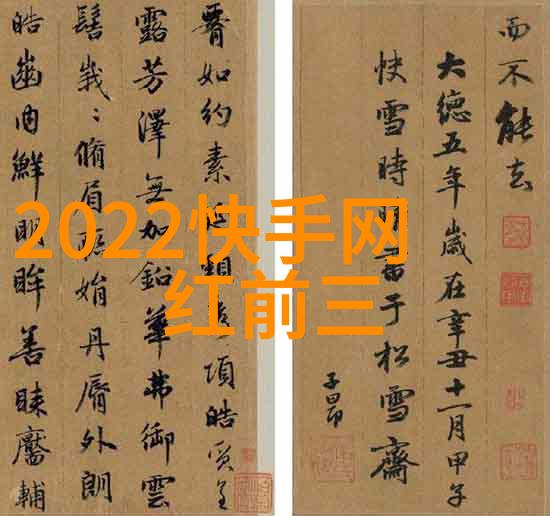 2022快手网
红前三
如約素延頸項皓質呈
露芳澤無加鉛華弗御雲
髻峩〻脩眉聯娟丹脣外朗
皓齒内鮮明眸善睞靨輔
而不能去
大德五年歲在辛丑十一月甲子
快雪時晴書于松雪齋
子昂